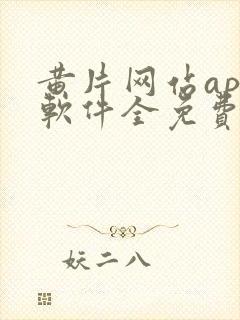 黄片网佔ap
軟件全免費
妖二八